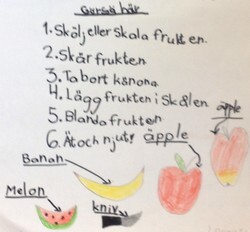 Gurskå här
1. Skölj eller Skala frukten.
2. Skår frukten
3. Ta bort känona.
4. Lägg frukten i Skålen
5. Blanda frukten.
6. Ät och njut! äpple
äpple
Banan
Melon
kniv